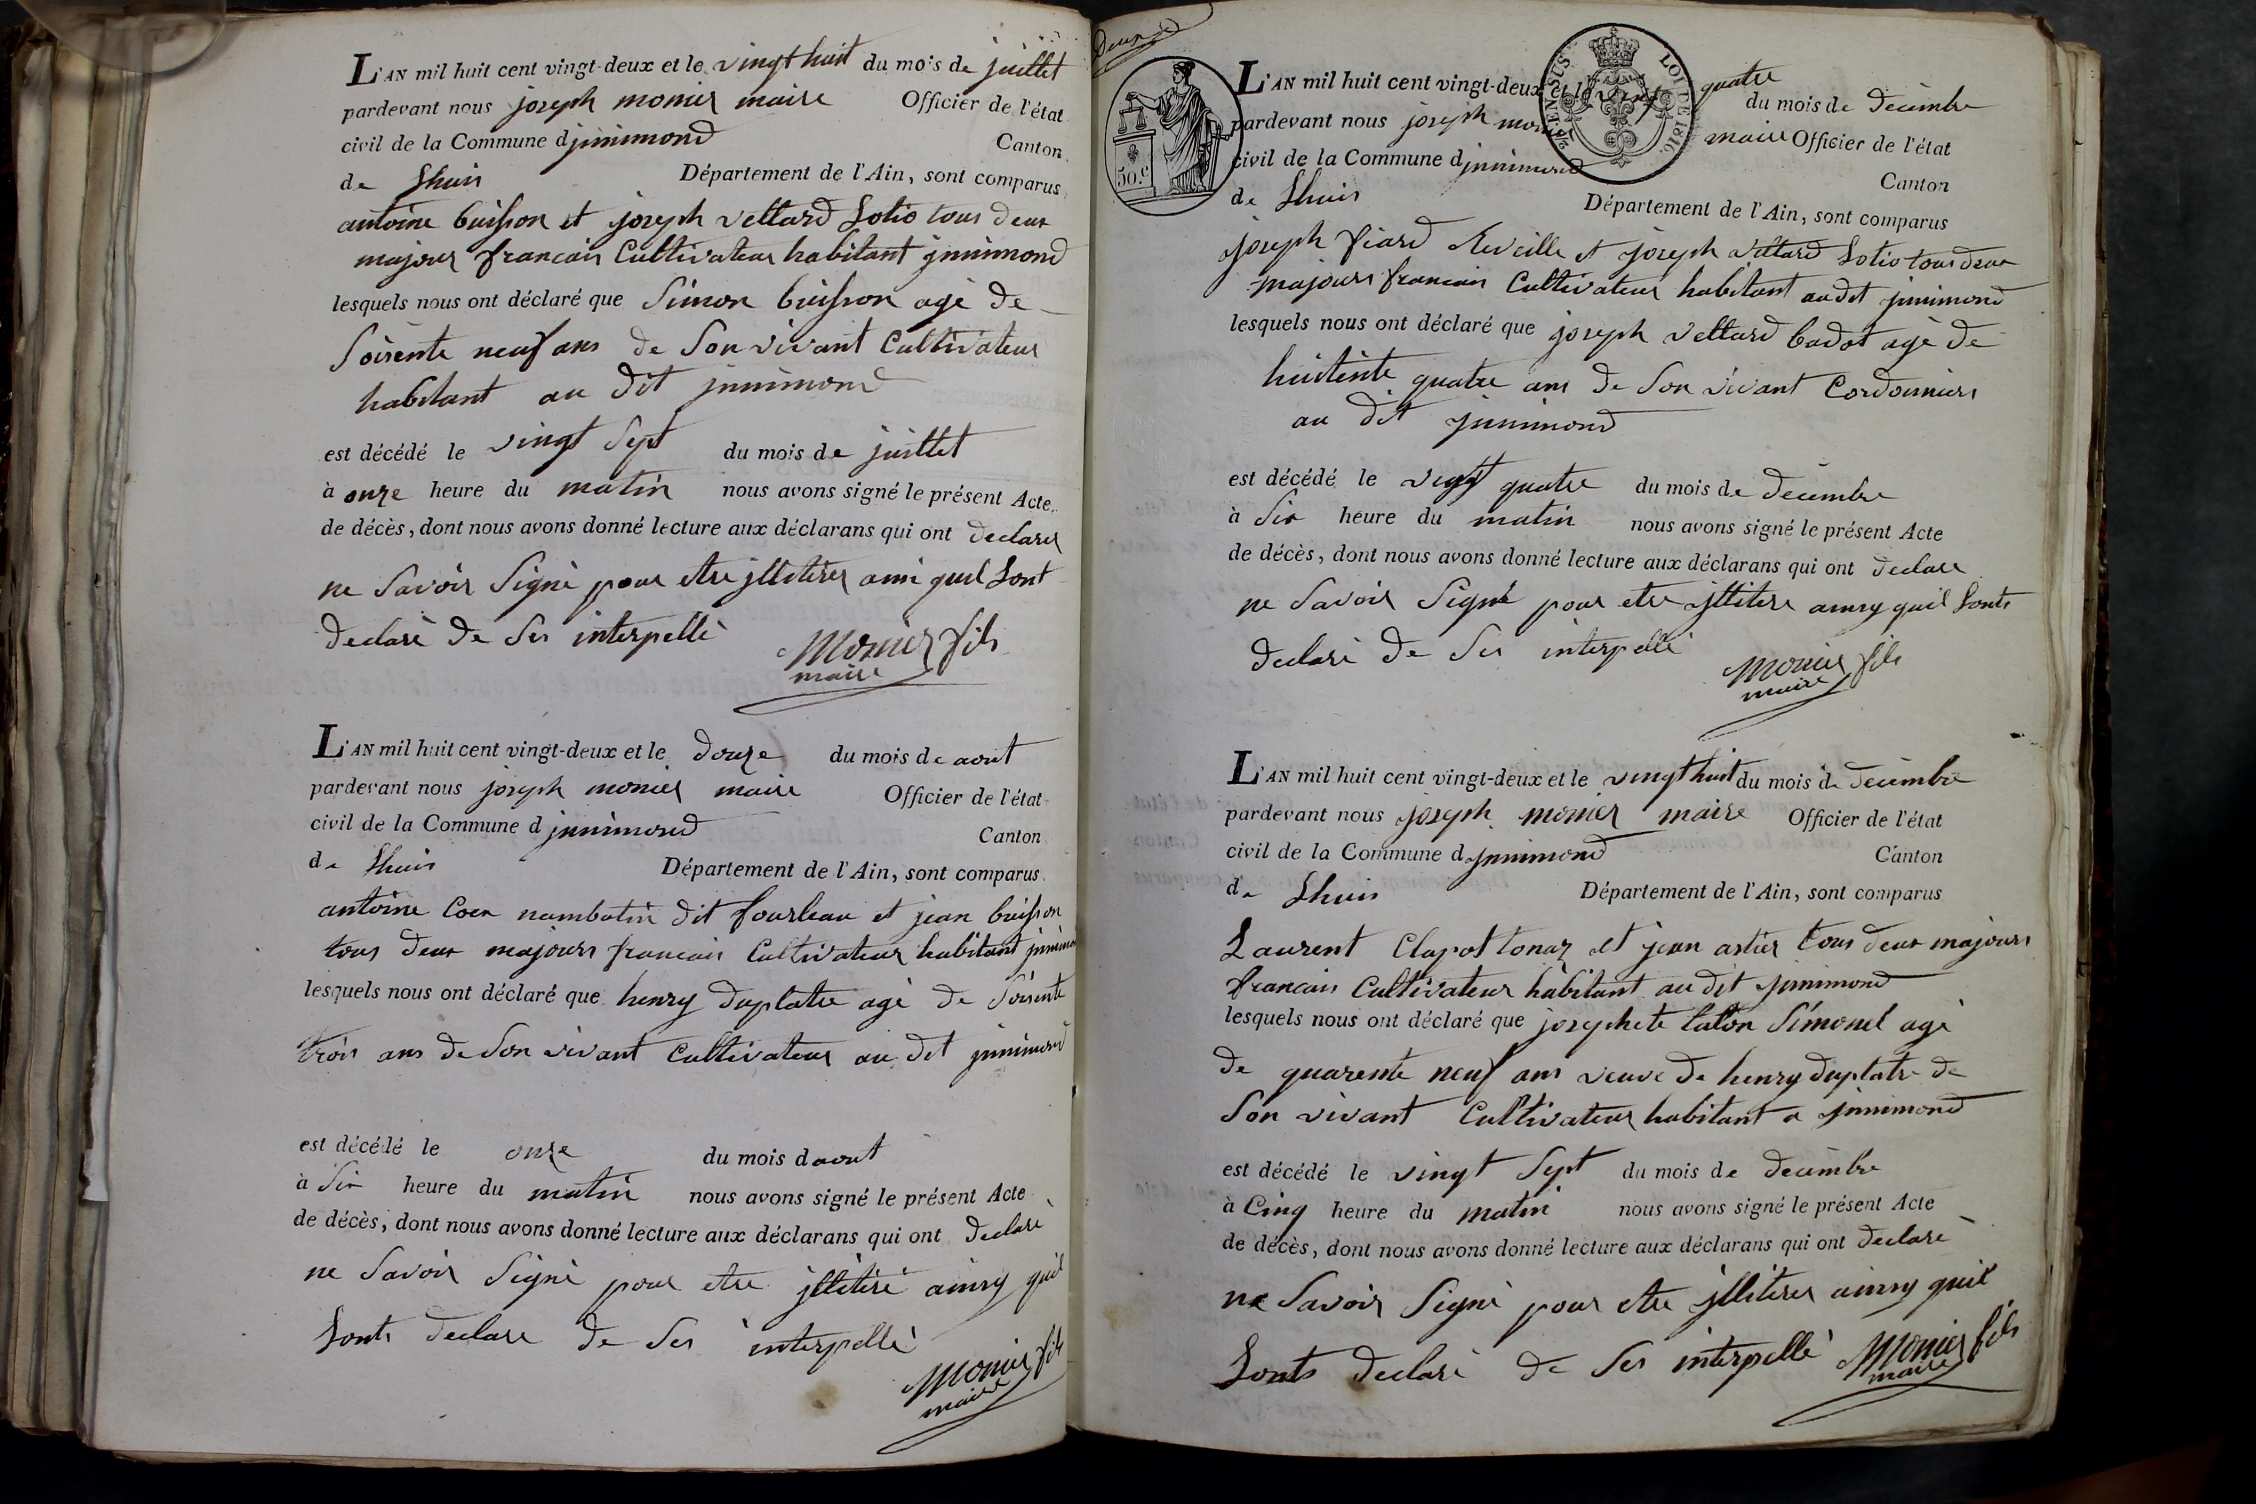 L'AN mil huit cent vingt-deux et le vingt huit du mois de juillet
pardevant nous joseph monier maire Officier de l'état
civil de la Commune d jnnimond Canton
de Lhuis Département de l'Ain, sont comparus
antoine buisson et joseph vettard Lolio tous deux
majeur francais Cultivateur habitant jnnimond
lesquels nous ont déclaré que Simon buisson agé de
Soisente neuf ans de Son vivant Cultivateur
habitant au dit jnnimond
est décédé le vingt Sept du mois de juillet
à onze heure du matin nous avons signé le présent Acte
de décès, dont nous avons donné lecture aux déclarans qui ont declarer
ne Savoir Signé pour etre jlliterer ainsi quil Sont
declaré de Ses interpellé
Monier fils
maire
L'AN mil huit cent vingt-deux et le douze du mois de aout
pardevant nous joseph monier maire Officier de l'état
civil de la Commune d jnnimond Canton
de Lhuis Département de l'Ain, sont comparus
antoine Coen nambotin dit fourleau et jean buisson
tous deux majours francais Cultivateur habitant
lesquels nous ont déclaré que henry duplatre agé de Soisente
trois ans de Son vivant Cultivateur au dit jnnimond
est décédé le onze du mois d aout
à Six heure du matin nous avons signé le présent Acte
de décès, dont nous avons donné lecture aux déclarans qui ont declaré
ne Savoir Signé pour etre jlliteré ainsy quil
Sonts declare de Ses interpellé
Monier fils
maire
50.c
TIMB. EN SUS LOI DE 1816.
L'AN mil huit cent vingt-deux et le vingt quatre du mois de decembre
pardevant nous joseph monier maire Officier de l'état
civil de la Commune d jnnimond Canton
de Lhuis Département de l'Ain, sont comparus
joseph fiard Reveille et joseph vettard Lolio tous deux
majours francais Cultivateur habitant audit jnnimond
lesquels nous ont déclaré que joseph vettard badot agé de
huitente quatre ans de Son vivant Cordonniers
au dit jnnimond
est décédé le vingt quatre du mois de decembre
à Six heure du matin nous avons signé le présent Acte
de décès, dont nous avons donné lecture aux déclarans qui ont declare
ne Savoir Signé pour etre jllitere ainsy quil Sonts
declaré de Ses interpellé
Monier fils
maire
L'AN mil huit cent vingt-deux et le vingt huit du mois de decembre
pardevant nous joseph monier maire Officier de l'état
civil de la Commune d jnnimond Canton
de Lhuis Département de l'Ain, sont comparus
Laurent Clapot tonaz et jean artier tous deux majours
francais Cultivateur habitant au dit jnnimond
lesquels nous ont déclaré que josephete talon Simonel agé
de quarente neuf ans veuve de henry duplatre de
Son vivant Cultivateur habitant a jnnimond
est décédé le vingt Sept du mois de decembre
à Cinq heure du matin nous avons signé le présent Acte
de décès, dont nous avons donné lecture aux déclarans qui ont declaré
ne Savoir Signé pour etre jlliterer ainsy quil
Sonts declaré de Ses interpellé
Monier fils
maire